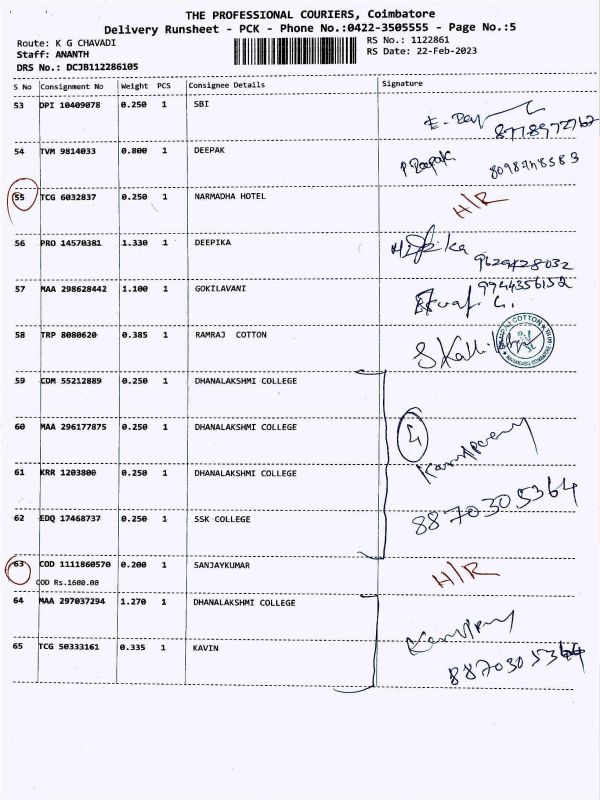 THE PROFESSIONAL COURIERS, Coimbatore
Delivery Runsheet - PCK - Phone No.:0422-3505555 - Page No.:5
Route: K G CHAVADI RS No.: 1122861
Staff: ANANTH RS Date: 22-Feb-2023
DRS No.: DCJB112286105
S No Consignment No Weight PCS Consignee Details Signature
53 DPI 10409078 0.250 1 SBI
8778972762
54 TVM 9814033 0.800 1 DEEPAK P Deepak 8098748583
55 TCG 6032837 0.250 1 NARMADHA HOTEL H/R
56 PRO 14570381 1.330 1 DEEPIKA
9629428032
57 MAA 298628442 1.100 1 GOKILAVANI 9944356152
58 TRP 8080620 0.385 1 RAMRAJ COTTON
59 CDM 55212889 0.250 1 DHANALAKSHMI COLLEGE
60 MAA 296177875 0.250 1 DHANALAKSHMI COLLEGE
61 KRR 1203800 0.250 1 DHANALAKSHMI COLLEGE
62 EDQ 17468737 0.250 1 SSK COLLEGE 8870305364
63 COD 1111860570 0.200 1 SANJAYKUMAR H/R
COD Rs.1600.00
64 MAA 297037294 1.270 1 DHANALAKSHMI COLLEGE
65 TCG 50333161 0.335 1 KAVIN 8870305364